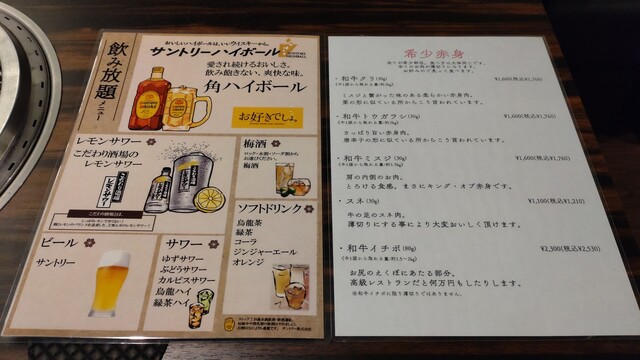 飲み放題
メニュー
おいしいハイボールは、いいウイスキーから。
サントリーハイボール
愛され続けるおいしさ。
飲み飽きない、爽快な味。
角ハイボール
お好きでしょ。
レモンサワー
こだわり酒場の
レモンサワー
梅酒
ロック・水割・ソーダ割から
お選びください。
梅酒
ソフトドリンク
烏龍茶
緑茶
コーラ
ジンジャーエール
オレンジ
ビール
サントリー
サワー
ゆずサワー
ぶどうサワー
カルピスサワー
烏龍ハイ
緑茶ハイ
希少赤身
・和牛クリ(80g)
ミスジと繋がった味のある柔らかい赤身肉。
栗の形に似ている所からこう言われています。
・和牛トウガラシ(80g)
¥1,600(税込¥1,760)
さっぱり旨い赤身肉。
唐辛子の形に似ている所からこう言われています。
・和牛ミスジ(80g)
¥1,600(税込¥1,760)
肩の内側のお肉。
とろける食感。まさにキング・オブ赤身です。
・スネ(80g)
¥1,100(税込¥1,210)
牛の足のスネ肉。
薄切りにする事により大変おいしく頂けます。
・和牛イチボ(80g)
¥2,300(税込¥2,530)
お尻のえくぼにあたる部分。
高級レストランだと何万円もしたりします。
※和牛イチボに限り薄切りではありません。